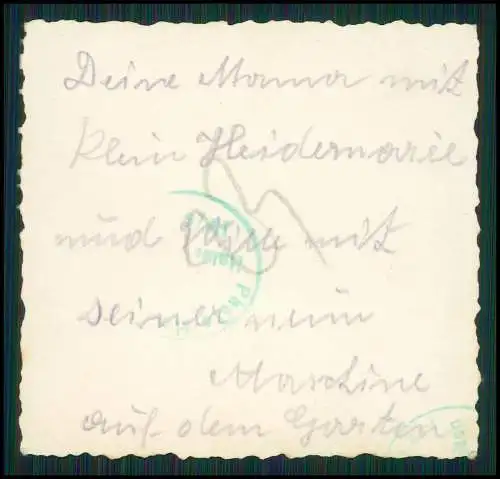 Deine Mama mit
klein Heidemarie
und mit
seiner neun
Maschine
auf dem Garten